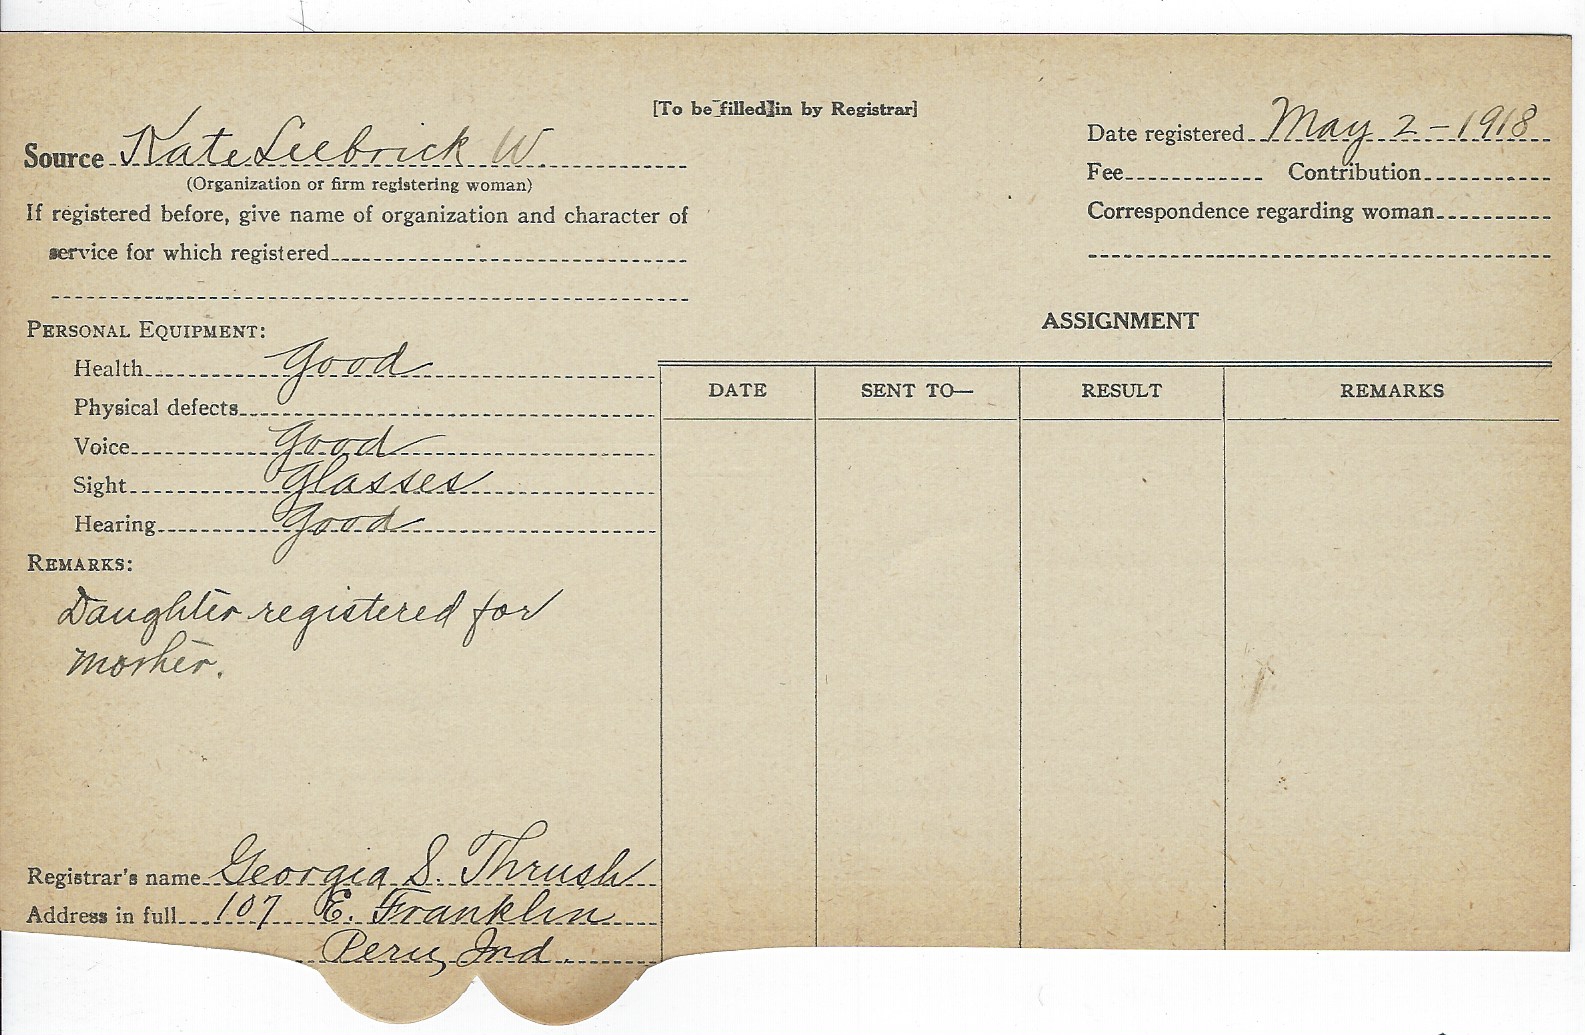 [To be filled in by Registrar]
Source Kate Leebrick W.
(Organization or firm registering woman)
If registered before, give name of organization and character of
service for which registered
Date registered May 2-1918
Fee Contribution
Correspondence regarding woman
PERSONAL EQUIPMENT:
Health Good
Physical defects
Voice Good
Sight Glasses
Hearing Good
REMARKS:
Daughter registered for
mother.
Registrar's name Georgia S. Thrush
Address in full 107 E. Franklin
Peru, Ind.
ASSIGNMENT
DATE SENT TO— RESULT REMARKS